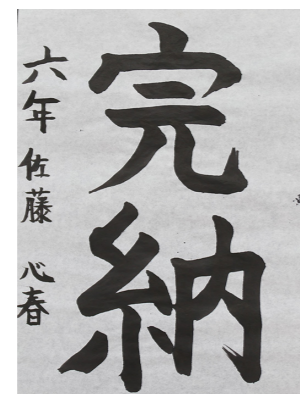 完納
六年 佐藤 心春